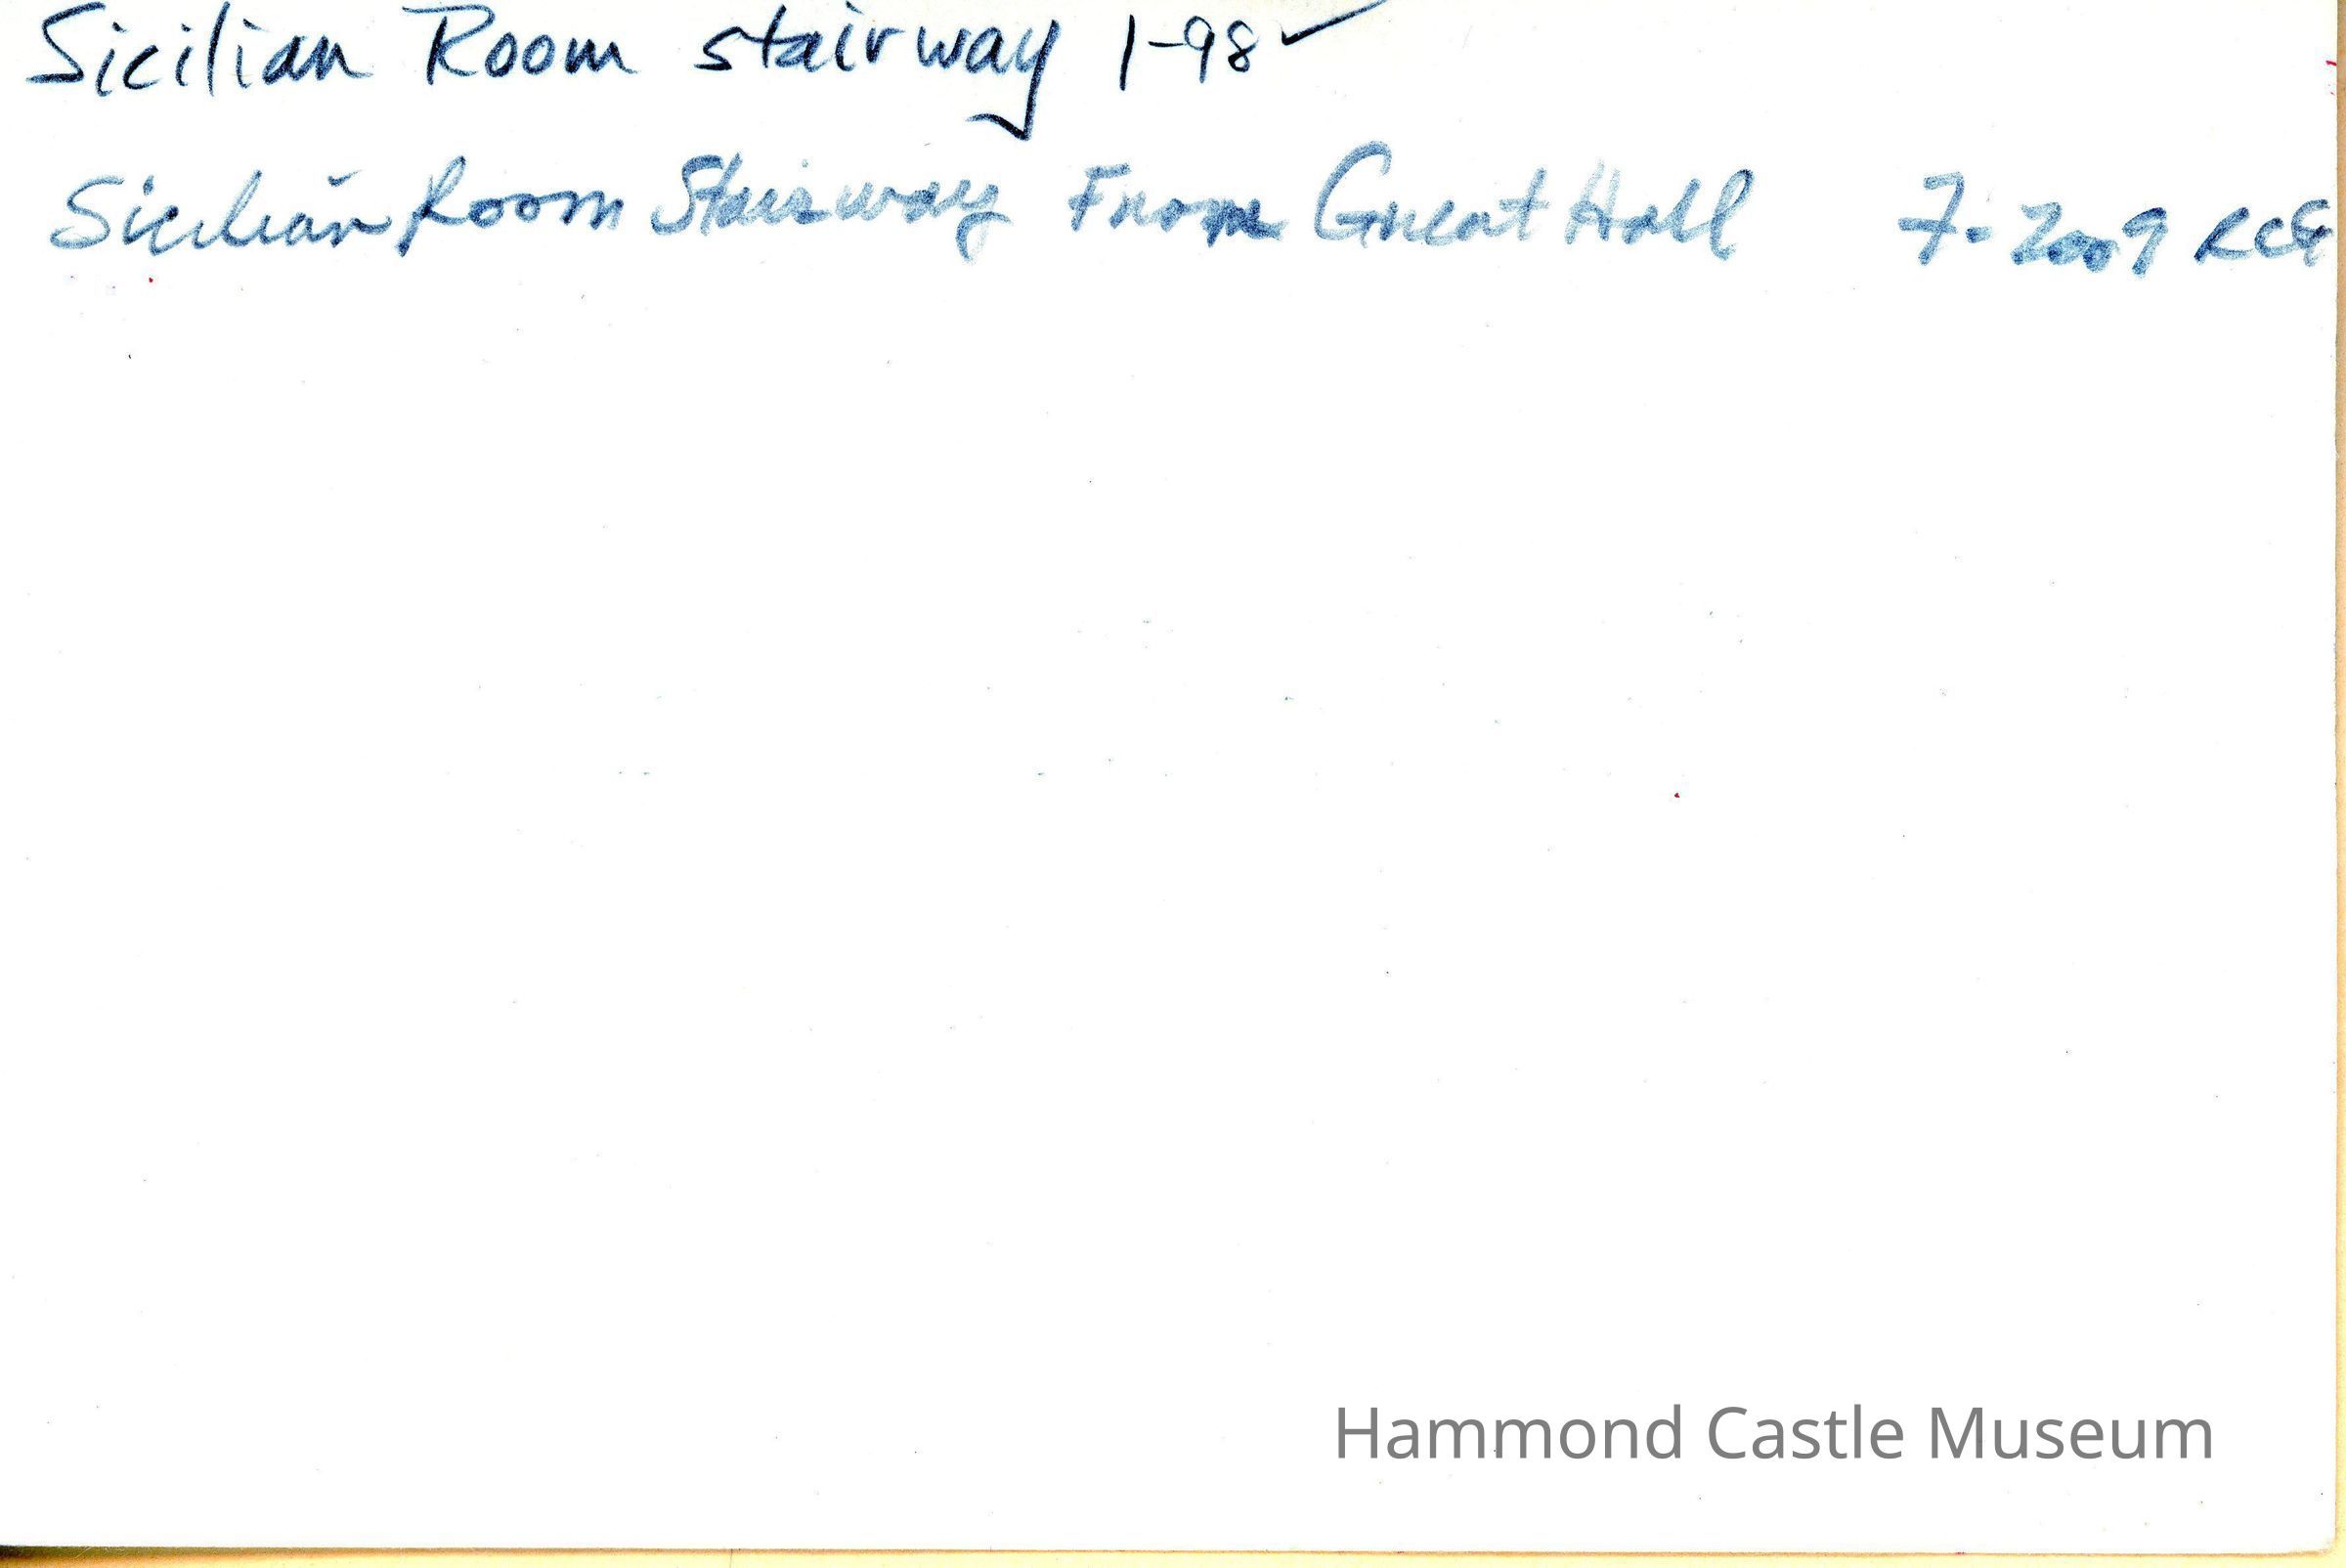 Sicilian Room stairway 1-98 ✓
Sicilian Room Stairway From Great Hall 7-2009 RCG
Hammond Castle Museum